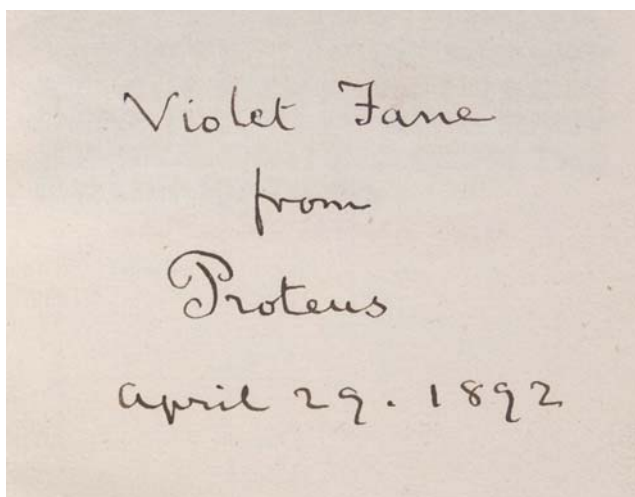 Violet Fane
from
Proteus
April 29. 1892